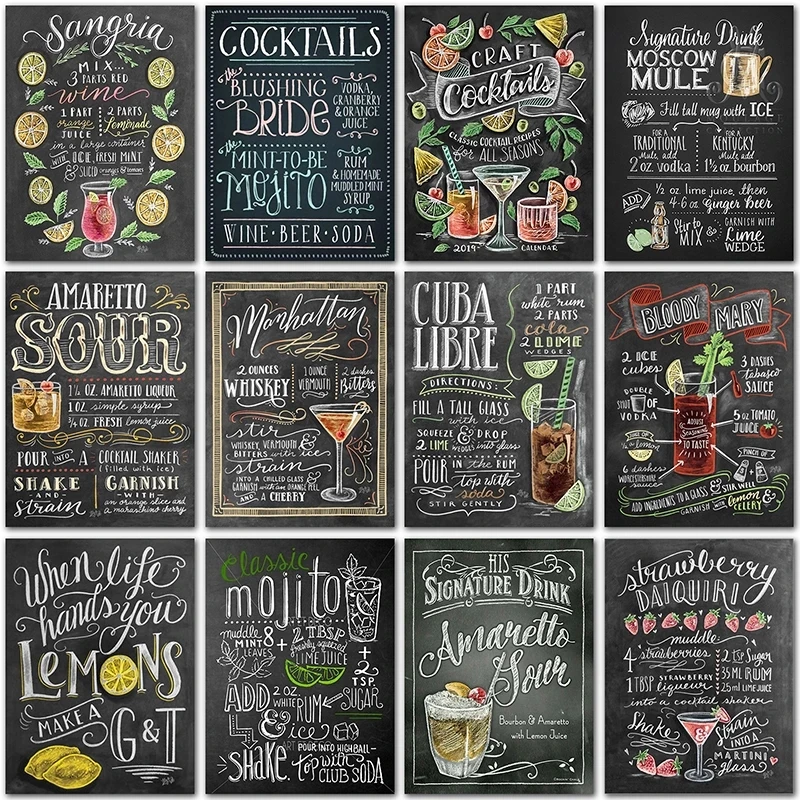 Sangria
MIX...
3 PARTS RED
wine
1 PART
orange
JUICE
2 PARTS
Lemonade
in a large container
WITH ICE, FRESH MINT
& SLICED oranges & lemons
COCKTAILS
the
BLUSHING
BRIDE
VODKA,
CRANBERRY
& ORANGE
JUICE
the
MINT-TO-BE
MOJITO
RUM
& HOMEMADE
MUDDLED MINT
SYRUP
WINE • BEER • SODA
CRAFT
Cocktails
CLASSIC COCKTAIL RECIPES
for ALL SEASONS
2019
CALENDAR
Signature Drink
MOSCOW
MULE
Fill tall mug with ICE
FOR A
TRADITIONAL
Mule, add
2 oz. vodka
FOR A
KENTUCKY
Mule, add
1½ oz bourbon
ADD
½ oz. lime juice, then
4-6 oz Ginger beer
Stir to
MIX
&
GARNISH WITH
Lime
WEDGE
AMARETTO
SOUR
1½ OZ. AMARETTO LIQUEUR
1 OZ. simple syrup
¾ OZ FRESH lemon juice
POUR INTO A
COCKTAIL SHAKER
(filled with ice)
SHAKE
AND
Strain
GARNISH
WITH
an orange slice and
a maraschino cherry
Manhattan
2 OUNCES
WHISKEY
1 OUNCE
VERMOUTH
2 dashes
Bitters
stir
WHISKEY, VERMOUTH &
BITTERS with ice
strain
INTO A CHILLED GLASS &
GARNISH with an ORANGE PEEL
AND A CHERRY
CUBA
LIBRE
1 PART
white rum
2 PARTS
cola
2 LIME
WEDGES
DIRECTIONS:
FILL A TALL GLASS
with ice
SQUEEZE & DROP
2 LIME WEDGES into glass
POUR IN the RUM
top with
soda
STIR GENTLY
BLOODY MARY
2 ICE
cubes
DOUBLE
SHOT OF
VODKA
JUICE OF
¼ a lemon
6 dashes
WORCESTERSHIRE
sauce
ADJUST
SEASONING
TO TASTE
3 DASHES
tabasco
SAUCE
5 oz TOMATO
JUICE
PINCH OF
ADD INGREDIENTS TO A GLASS & STIR WELL
GARNISH WITH Lemon
& CELERY
When life
hands you
LEMONS
MAKE A
G&T
Classic
mojito
muddle 8
MINT
LEAVES
+
2 TBSP
freshly squeezed
LIME JUICE
+
2
TSP.
SUGAR
ADD
2 OZ
WHITE RUM
&
ice
Shake.
POUR INTO HIGHBALL
top with
CLUB SODA
HIS
SIGNATURE DRINK
Amaretto
Sour
Bourbon & Amaretto
with Lemon Juice
strawberry
DAIQUIRI
muddle
4 strawberries
1 TBSP STRAWBERRY
liqueur
2 tsp Sugar
35ml RUM
25ml LIME JUICE
into a cocktail shaker
Shake
&
Strain
INTO A
MARTINI
glass